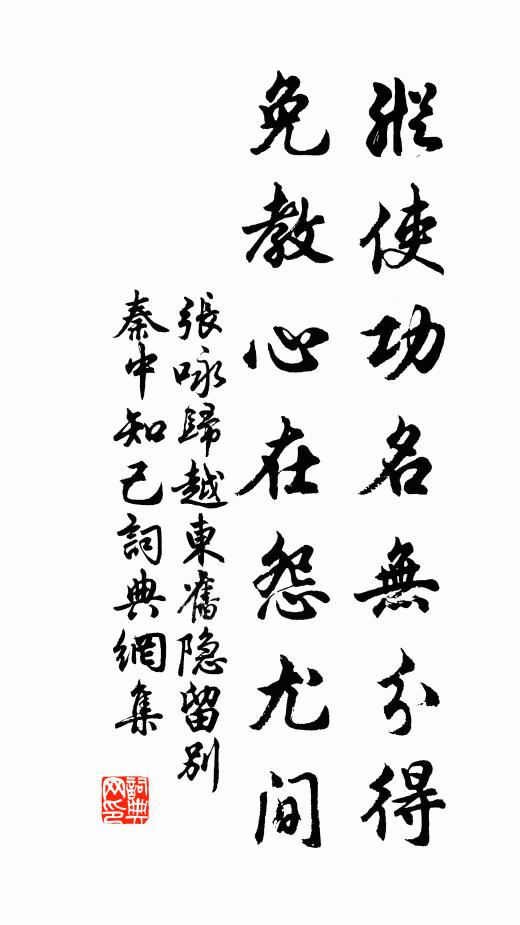 縱使功名無分得
免教心在怨尤间
張咏歸越東舊隐留别
秦中知己詞典網集
詞典網印